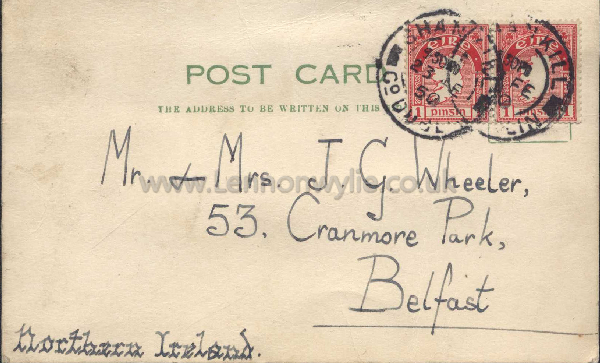 POST CARD
THE ADDRESS TO BE WRITTEN ON THIS
éIRe éIRe
1 pinsin 1
www.Lennonwylie.co.uk
Mr. & Mrs. J. G. Wheeler,
53, Cranmore Park,
Belfast
Northern Ireland.